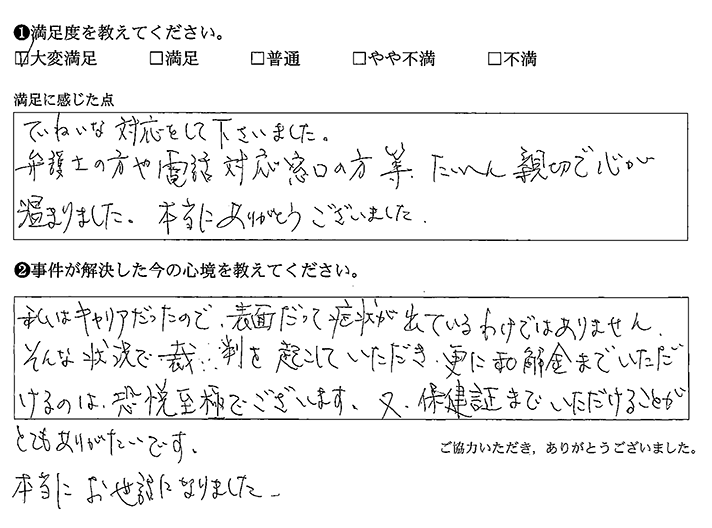 ❶満足度を教えてください。
☑大変満足 □満足 □普通 □やや不満 □不満
満足に感じた点
ていねいな対応をして下さいました。
弁護士の方や電話対応窓口の方等、たいへん親切で心が
温まりました。本当にありがとうございました.
❷事件が解決した今の心境を教えてください。
私はキャリアだったので、表面だって症状が出ているわけではありません.
そんな状況で裁判を起こしていただき、更に和解金までいただ
けるのは、恐悦至極でございます。又、保健証までいただけることが
とてもありがたいです、
ご協力いただき，ありがとうございました。
本当にお世話になりました